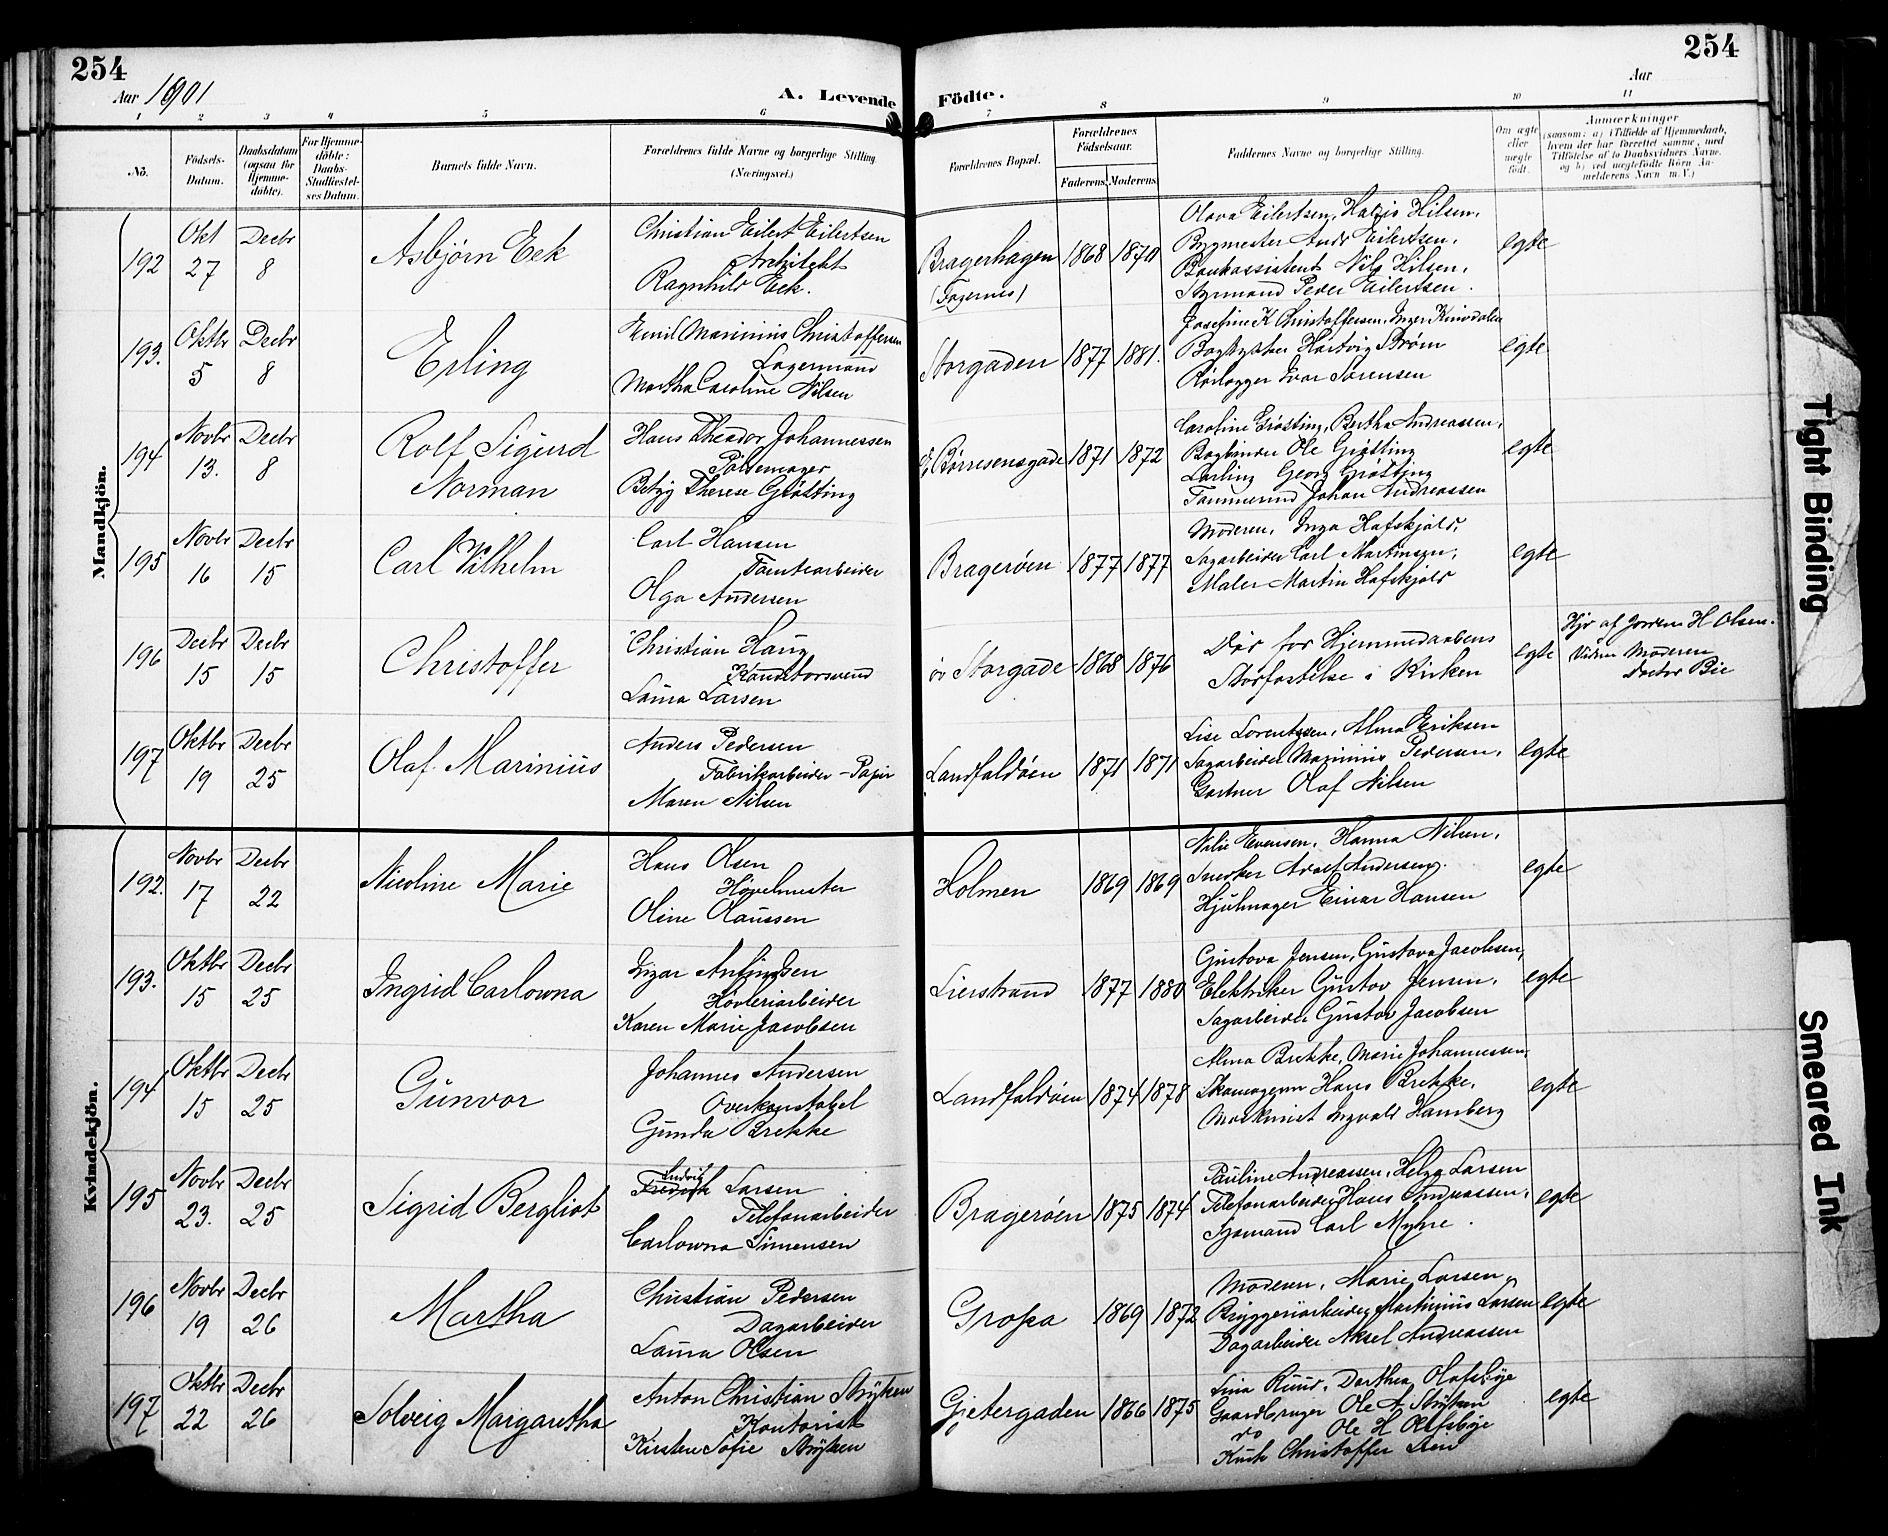 254
254
Aar 1901
Aar
A. Levende Födte.
1 2 3 4 5 6 7 8 9 10 11
No.
Födsels-Datum.
Daabsdatum (ogsaa for Hjemme-döbte).
For Hjemme-döbte: Daabs-Stadfæstel-ses Datum.
Barnets fulde Navn.
Forældrenes fulde Navne og borgerlige Stilling (Næringsvei.)
Forældrenes Bopæl.
Forældrenes Födselsaar.
Faderens. Moderens.
Faddernes Navne og borgerlige Stilling.
Om ægte eller uægte födt.
Anmærkninger
(saasom: a) i Tilfælde af Hjemmedaab, hvem der har forrettet samme, med Tilföielse af to Daabsvidners Navne. og b) ved uægtefödte Börn Anmelderens Navn m. V.)
Mandkjön.
192
Okt 27
Decbr 8
Asbjørn Eek
Christian Eilert Eilertsen
Arkitekt
Ragnhild Eek.
Bragerhagen
(Fagernes)
1868
Olava Eilertsen, Nilsen,
Bygmester Andr Eilertsen,
Bankassistent Nils Nilsen,
Styrmand Peder Eilertsen.
egte
193.
Oktbr 5
Decbr 8
Erling
Emil Marinius Christoffersen
Lagermand
Martha Caroline Nilsen
Storgaden
1877 1881.
Josefine K Christoffersen, Inger
Bogtrykker Hartvig Strøm
Rørlægger Ivar Sørensen
egte
194
Novbr 13.
Decbr 8
Rolf Sigurd
Norman
Hans Theodor Johannessen
Pølsemager
Betzy Therese Grøtting
Børresensgade
1871 1872
Caroline Grøtting, Bertha Andreassen,
Bogbinder Ole Grøtting
Lærling Georg Grøtting
Tømmermd Johan Andreassen
egte
195
Novbr 16
Decbr 15
Carl Vilhelm
Carl Hansen
Tomtearbeider
Olga Andersen
Bragerøen
1877 1877
Moderen, Inga Hafskjold,
Sagarbeider Carl Martinsen,
Maler Martin Hafskjold
egte
196
Decbr 15
Decbr 15
Christoffer
Christian Haug
Konditorsvend
Laura Larsen
øv Storgade
1868 1876
Død før Hjemmedaabens
Stadfæstelse i Kirken
egte
Hjd af Jordem H Olsen.
Vidner Moderen
Doctor Bie
197
Oktbr 19
Decbr 25
Olaf Marinius
Anders Pedersen
Fabrikarbeider - Papir
Maren Nilsen
Landfaldøen
1871 1871
Lise Lorentzen, Alma Eriksen
Sagarbeider Marinius Pedersen,
Gartner Olaf Nilsen
egte
Kvindekjön.
192.
Novbr 17
Decbr 22
Nicoline Marie
Hans Olsen
Høvelmester
Oline Olaussen
Holmen
1869 1869
Evensen, Hanna Nilsen,
Snedker Adolf Andersen.
Hjulmager Einar Hansen
egte
193.
Oktbr 15
Decbr 25
Ingrid Carlowna
Høvleriarbeider
Karen Marie Jacobsen
Lierstrand
1877 1880
Gustava Jensen, Gustava Jacobsen,
Elektriker Gustav Jensen,
Sagarbeider Gustav Jacobsen
egte
194
Oktbr 15
Decbr 25
Gunvor
Johannes Andersen
Overkonstabel
Gunda Brekke
Landfaldøen
1874 1878
Alma Brekke, Marie Johannessen,
Skomagerm Hans Brekke,
Maskinist Ingvald Hamberg
egte
195
Novbr 23.
Decbr 25
Sigrid Bergliot
Ludvig
Fredrik Larsen
Telefonarbeider
Carlowna Simensen
Bragerøen
1875 1874
Pauline Andreassen, Helga Larsen
Telefonarbeider Hans Andreassen,
Sjømand Carl Myhre.
egte
196
Novbr 19
Decbr 26
Martha
Christian Pedersen
Dagarbeider
Laura Olsen
Gropa
1869 1872
Moderen, Marie Larsen,
Bryggeriarbeider Martinius Larsen
Dagarbeider Aksel Andreassen
egte
197
Oktbr 22
Decbr 26
Solveig Margaretha
Anton Christian Strýken
Kontorist
Kirsten Sofie Strýken
Gjetergaden
1866 1875
Lina Ruud, Dorthea Olafsbýe
Gaardbruger Ole A Strýken
do Ole H Olafsbýe
Kusk Christoffer Lien
egte
Tight Binding
Smeared Ink